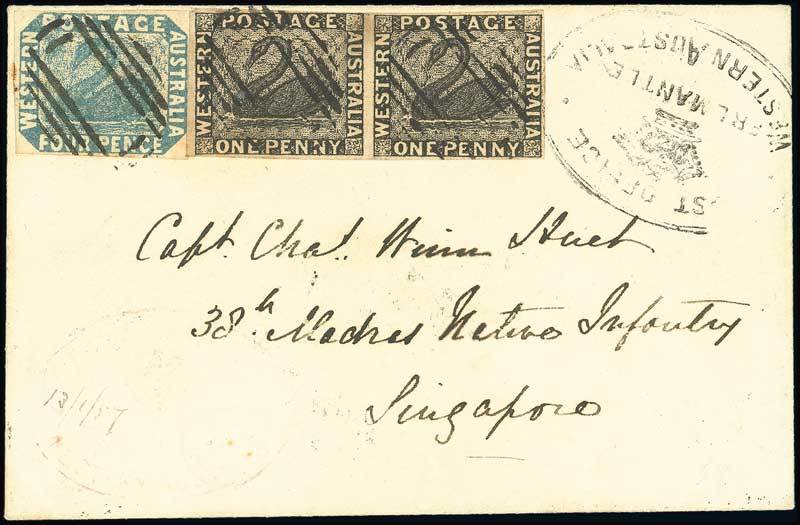 POSTAGE
WESTERN
AUSTRALIA
FOUR PENCE
POSTAGE
WESTERN
AUSTRALIA
ONE PENNY
POSTAGE
WESTERN
AUSTRALIA
ONE PENNY
ST OFFICE
WESTERN AUSTRALIA
Capt. Chas. Huet
38th Madras Native Infantry
Singapore
13/1/57